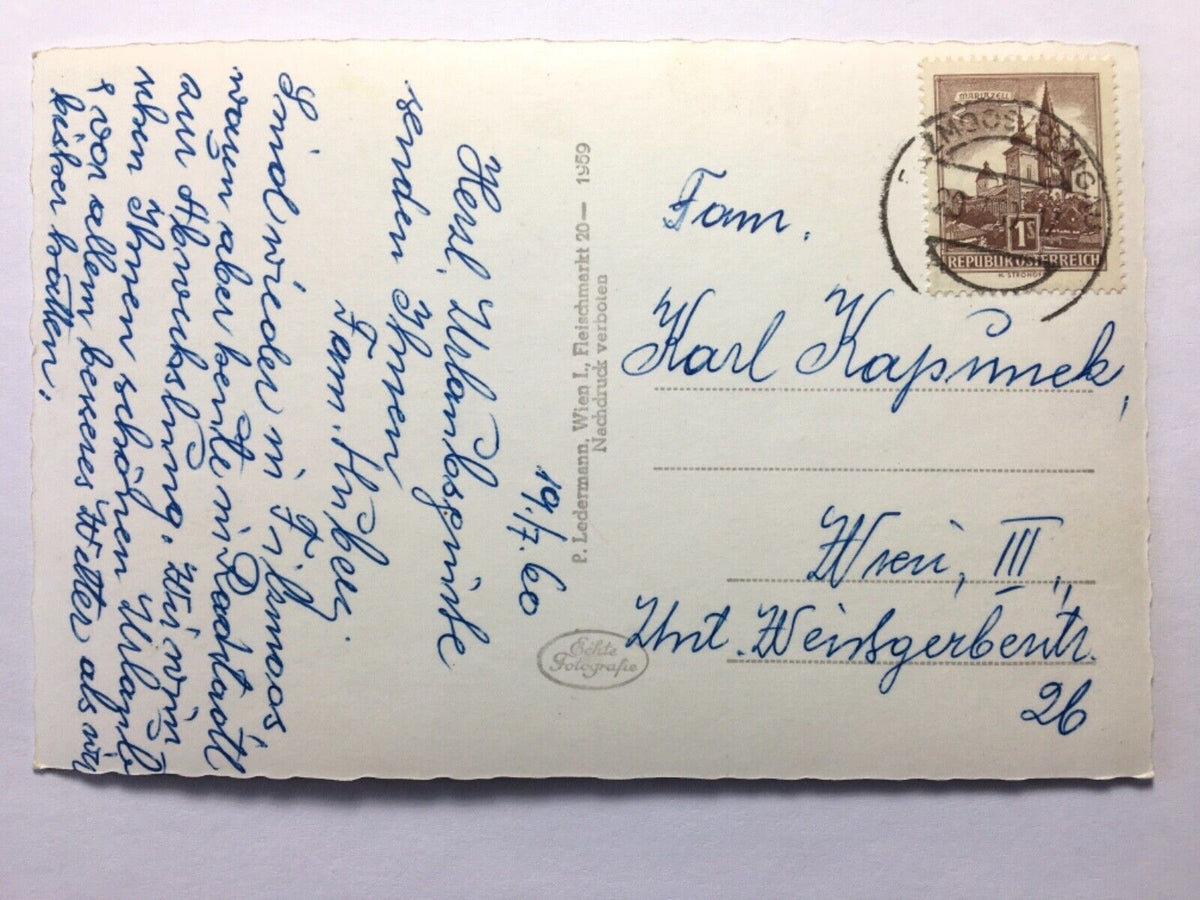 19./7. 60
Herzl. Urlaubsgrüße
senden Ihnen
Fam. Huber.
Sind wieder in Filzmoos
waren aber heute in Radstadt
zur Abwechslung. Wir wün
schen Ihnen schönen Urlaub
& vor allem besseres Wetter als wir
bisher hatten.
P. Ledermann, Wien I., Fleischmarkt 20 — 1959
Nachdruck verboten
Echte
Fotografie
MARIAZELL
1S
REPUBLIK ÖSTERREICH
Fam.
Karl Kapunek,
Wien, III.,
Unt. Weißgerberstr.
26